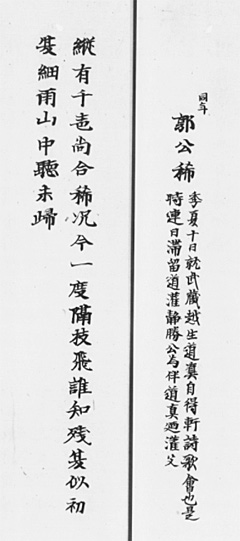 同年
郭公稀
季夏十日就武蔵越生道真自得軒詩歌會也是
時連日滞留道灌静勝公為伴道真廼灌父
縦有千声尚合稀况今一度隔枝飛誰知残夏似初
夏細雨山中聽未歸